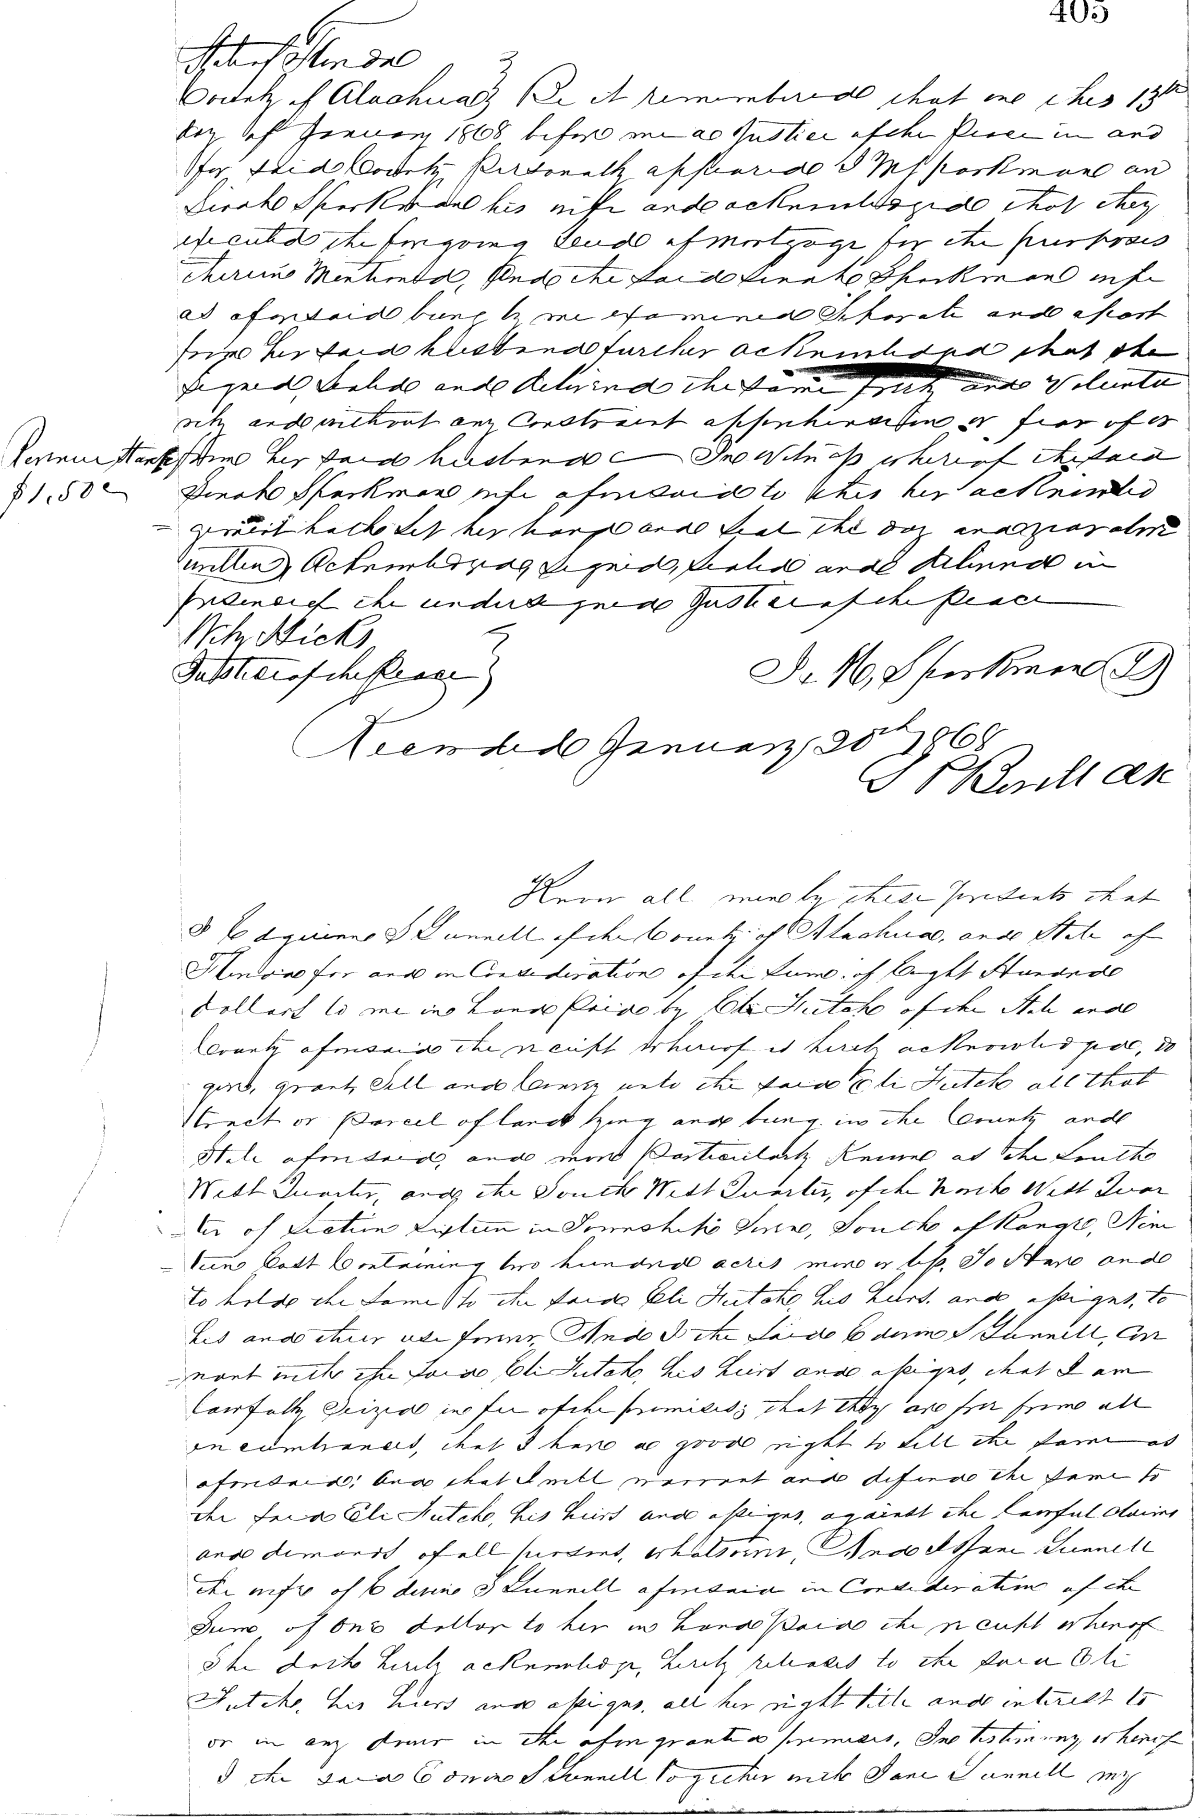 405
State of Florida
County of Alachua } Be it remembered that on this 13th
day of January 1868 before me a Justice of the Peace in and
for said County Personally appeared J M Sparkman an
Sirah Sparkman his wife and acknowledged that they
executed the forgoing deed of mortgage for the purposes
therein Mentioned, And the said Sirah Sparkman wife
as aforesaid being by me examined Seperate and apart
from her said husband further acknowledged that she
signed, sealed and delivered the same freely and volunta
rily and without any Constraint apprehension or fear of or
Revenue Stamp from her said husband In Witness whereof the said
$1.50c Sirah Sparkman wife aforesaid to this her acknowled
gement hath set her hand and seal the day and year above
written, Acknowledged signed, sealed and delivered in
presence of the undersigned Justice of the Peace
Hicks
Justice of the Peace } J. M, Sparkman
Recorded January, 20th 1868
Clk
Know all men by these presents that
I S Tunnell of the County of Alachua, and State of
Florida for and in Consideration of the sum of Eight Hundred
dollars to me in hand Paid by Eli Futch of the State and
County aforesaid the receipt whereof is hereby acknowledged, do
give, grant, sell and convey unto the said Eli Futch all that
tract or Parcel of land lying and being in the County and
State aforesaid, and more Particularly Known as the South
West Quarter, and the South West Quarter, of the North West Quar
ter of Section Sixteen in Township Seven, South of Range, Nine
teen East Containing two hundred acres more or less. To Have and
to hold the same to the said Eli Futch, his heirs. and assigns, to
his and their use forever, And I the said S Tunnell, Cov
nant with the said Eli Futch, his heirs and assigns, that I am
lawfully seized in fee of the premises; that they are free from all
encumbrances, that I have a good right to sell the same as
aforesaid; And that I will warrant and defend the same to
the said Eli Futch, his heirs and assigns, against the lawful claims
and demands of all persons, whatsoever, And I Jane Tunnell
the wife of S Tunnell aforesaid in Consideration of the
Sum, of One dollar to her in hand Paid the receipt whereof
She doth hereby acknowledge, hereby releases to the said Eli
Futch, his heirs and assigns, all her right title and interest to
or in any dower in the afore granted premises, In testimony whereof
I the said S Tunnell together with Jane Tunnell my